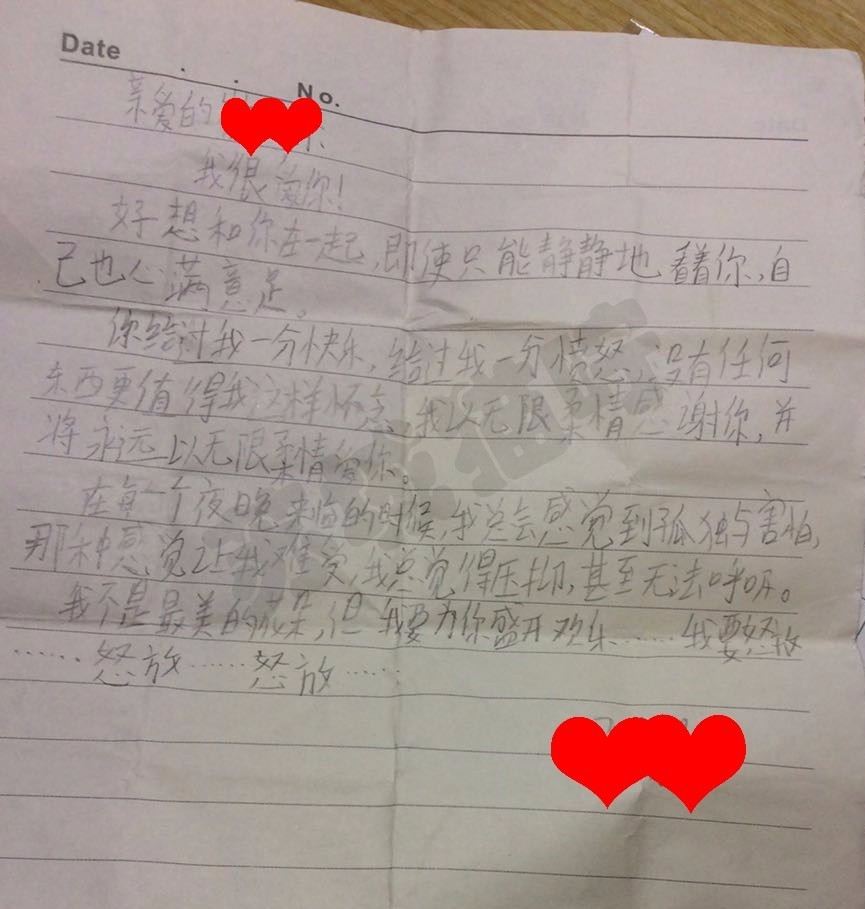 Date
No.
亲爱的
我很爱你!
好想和你在一起,即使只能静静地看着你,自
己也心满意足。
你给过我一分快乐,给过我一分愤怒,没有任何
东西更值得我这样怀念,我以无限柔情感谢你,并
将永远以无限柔情爱你。
在每个夜晚来临的时候,我总会感觉到孤独与害怕,
那种感觉让我难受,我总觉得压抑,甚至无法呼吸。
我不是最美的花朵,但我要为你盛开欢乐……我要怒放
……怒放……怒放……